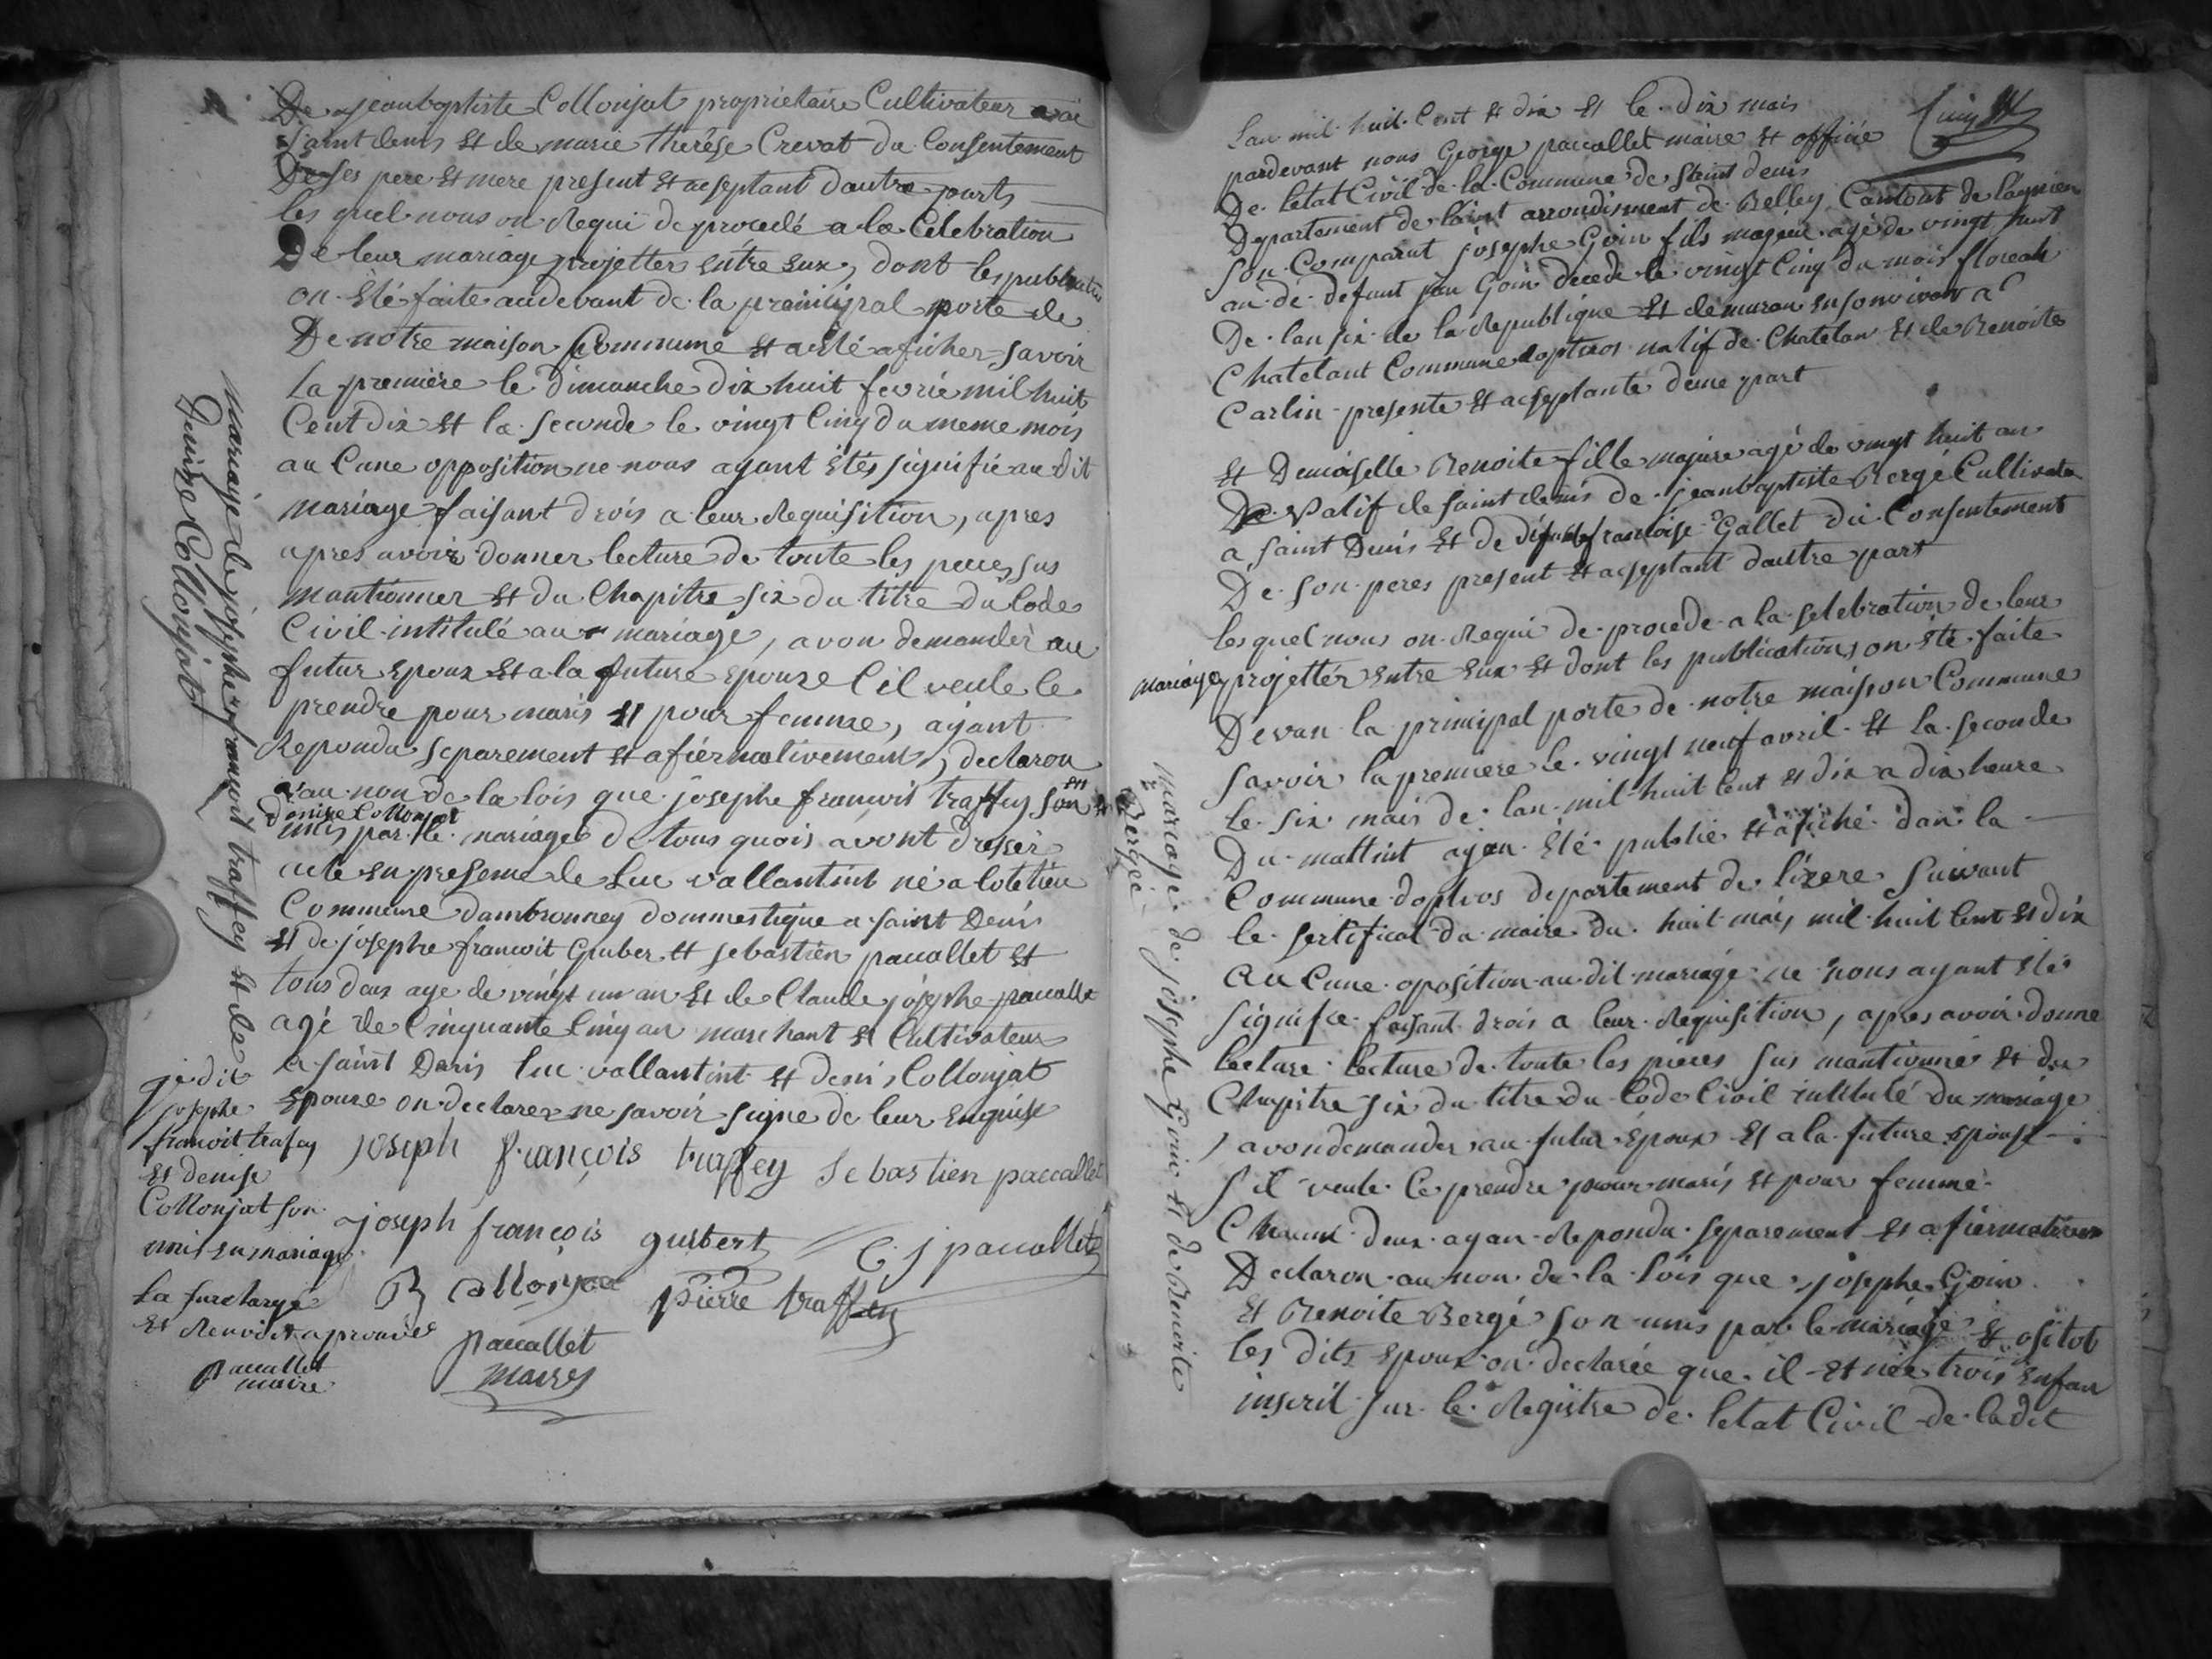 De jeanbaptiste Collonjat proprietaire Cultivateur a
saint denis et de marie therése Crevat du Consentement
De ses pere et mere present et acseptant dautre parts
les quel nous on Requi de procedé a la Célebration
De leur mariage projetter entre eux, dont les publication
on été faite audevant de la prainsipal porte de
De notre maison Commune et a été aficher savoir
La premiere le dimanche dix huit fevrié mil huit
Cent dix et la seconde le vingt Cinq du meme mois
au Cune opposition ne nous ayant étés signifié au dit
mariage faisant drois a leur Requisition, apres
apres avoir donner lecture de toute les pieces sus
mantionner et du Chapitre six du titre du Code
Civil intitulé au mariage, avon demander au
futur epoux et a la future epouse Cil veule le
prendre pour maris et pour femme, ayant
Repondu separement et afiérmativement, declaron
au non de la lois que josephe franwit traffey son et
denise Collonjat
unis par le mariage de tous quois avont dresser
acte en presence de Luc vallantint né a
Commune dambronney dommestique a saint Denis
et de josephe franwit Guiber et sebastien paucallet et
tous deux age de vingt un an et de Claude josephe paucallet
agé de Cinquante Cinq an marchant et Cultivateur
a saint Denis luc vallantint et denis Collonjat
epouse on declarer ne savoir signe de leur enquise
joseph françois traffey sebastien paccallet
joseph françois guibert C j paucallet
B Collonjat pierre traffey
paucallet
maire
je dit
josephe
franwit trafey
et denise
Collonjat son
unis en mariage
La surcharge
et Renvoit aprouvé
paucallet
maire
mariage de josephe franwit traffey et de
Denise Collonjat
Lan mil huit Cent et dix et le dix mais
pardevant nous George paucallet maire et officié
De letat Civil de la Commune de saint denis
Departement de laint arrondisment de Belley Cantont de lagnieu
son Comparut josephe Goin fils majeur agé de vingt huit
an de defunt jan Goin decede le vingt Cinq du mois floreal
De lan six de la Republique et demuran en son vivan a
Chatelant Commune doptevos natif de Chatelan et de Benoite
Carlin presente et acseptante dune part
et Demoiselle Benoite fille majure agé de vingt huit an
De Natif de saint denis de jeanbaptiste Bergé Cultivate
a saint Denis et de defunte francoise Gallet du Consentement
De son peres present et acseptant dautre part
les quel nous on Requi de procede a la selebration de leur
mariage projettér entre eux et dont les publications on été faite
Devan la principal porte de notre maison Commune
savoir la premiere le vingt neuf avril et la seconde
le six mais de lan mil huit Cent et dix a dix heure
Du mattint ayan été publié et afiché dan la
Commune doptevos departement de lizere suivant
le sertificat du maire du huit mais mil huit Cent et dix
au Cune oposition au dit mariage ne nous ayant été
signifie faisant drois a leur Requisition, apres avoir donne
lecture lecture de toute les pieces sus mantionné et du
Chapitre six du titre du Code Civil intitulé du mariage
avon demander au futur epoux et a la future epouse
s'il veule le prendre pour maris et pour femme
Chacun deux ayan Repondu separement et afiermativem
Declaron au non de la lois que josephe Goin
et Benoite Bergé son unis par le mariage et ositot
les dits epoux on declarée que il et née trois enfan
inscrit sur le Registre de letat Civil de ladit
mariage de josephe Goin et de Benoite
Bergée